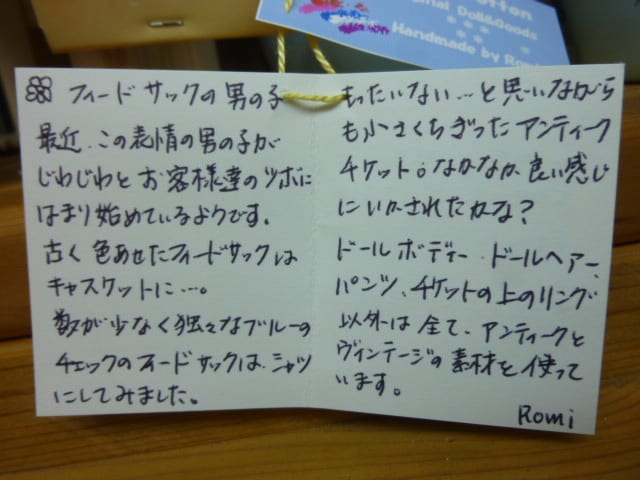 otton
inal Doll&Goods
Handmade by Romi
フィードサックの男の子
最近、この表情の男の子が
じわじわと お客様達のツボに
はまり始めているようです。
古く 色あせたフィードサックは
キャスケットに…。
数が少なく独々なブルーの
チェックのフィードサックは、シャツ
にしてみました。
もったいない…と思いながら
も小さくちぎったアンティーク
チケット。なかなか良い感じ
にいかされたかな？
ドールボディー、ドールヘアー、
パンツ、チケットの上のリング
以外は全て、アンティークと
ヴィンテージの素材を使って
います。
Romi